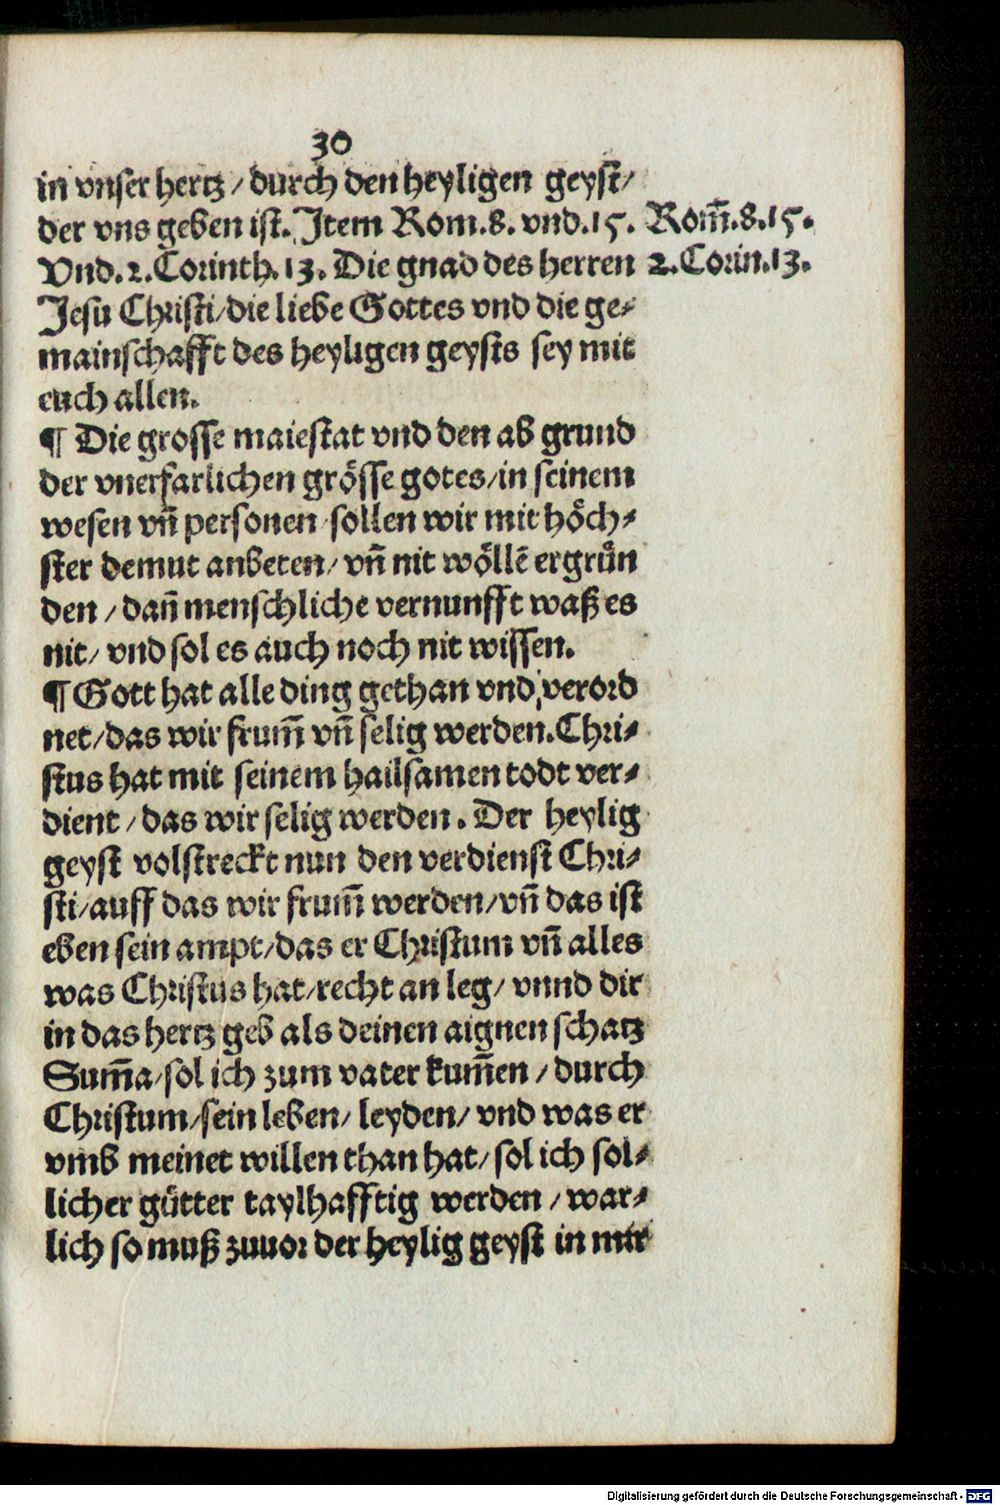 30
in vnser hertz / durch den heyligen geyst /
der vns geben ist. Item Rom.8. vnd.15. Rom̃.8.15.
Vnd.2.Corinth.13. Die gnad des herren 2.Corin.13.
Jesu Christi / die liebe Gottes vnd die ge-
mainschafft des heyligen geysts sey mit
euch allen.
¶ Die grosse maiestat vnd den ab grund
der vnerfarlichen grösse gotes / in seinem
wesen vñ personen sollen wir mit höch-
ster demut anbeten / vñ nit wöllẽ ergrün
den / dañ menschliche vernunfft waß es
nit / vnd sol es auch noch nit wissen.
¶ Gott hat alle ding gethan vnd verord
net / das wir frum̃ vñ selig werden. Chri-
stus hat mit seinem hailsamen todt ver-
dient / das wir selig werden. Der heylig
geyst volstreckt nun den verdienst Chri-
sti / auff das wir frum̃ werden / vñ das ist
eben sein ampt / das er Christum vñ alles
was Christus hat / recht an leg / vnnd dir
in das hertz geb als deinen aignen schatz
Sum̃a / sol ich zum vater kum̃en / durch
Christum / sein leben / leyden / vnd was er
vmb meinet willen than hat / sol ich sol-
licher gütter taylhafftig werden / war-
lich so muß zuuor der heylig geyst in mir
Digitalisierung gefördert durch die Deutsche Forschungsgemeinschaft - DFG